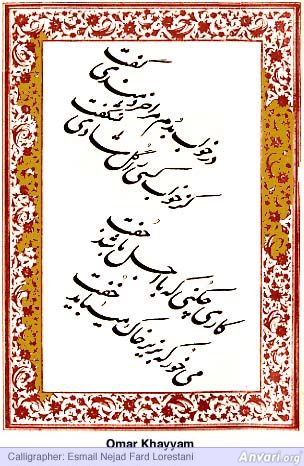 در خواب بُدم مرا خردمندی گفت
کز خواب کسی را گُل شادی نشکفت
کاری چکنی که با اجل باشد جُفت
می خور که بزیر خاک میباید خفت
Omar Khayyam
Calligrapher: Esmail Nejad Fard Lorestani
Anvari.org